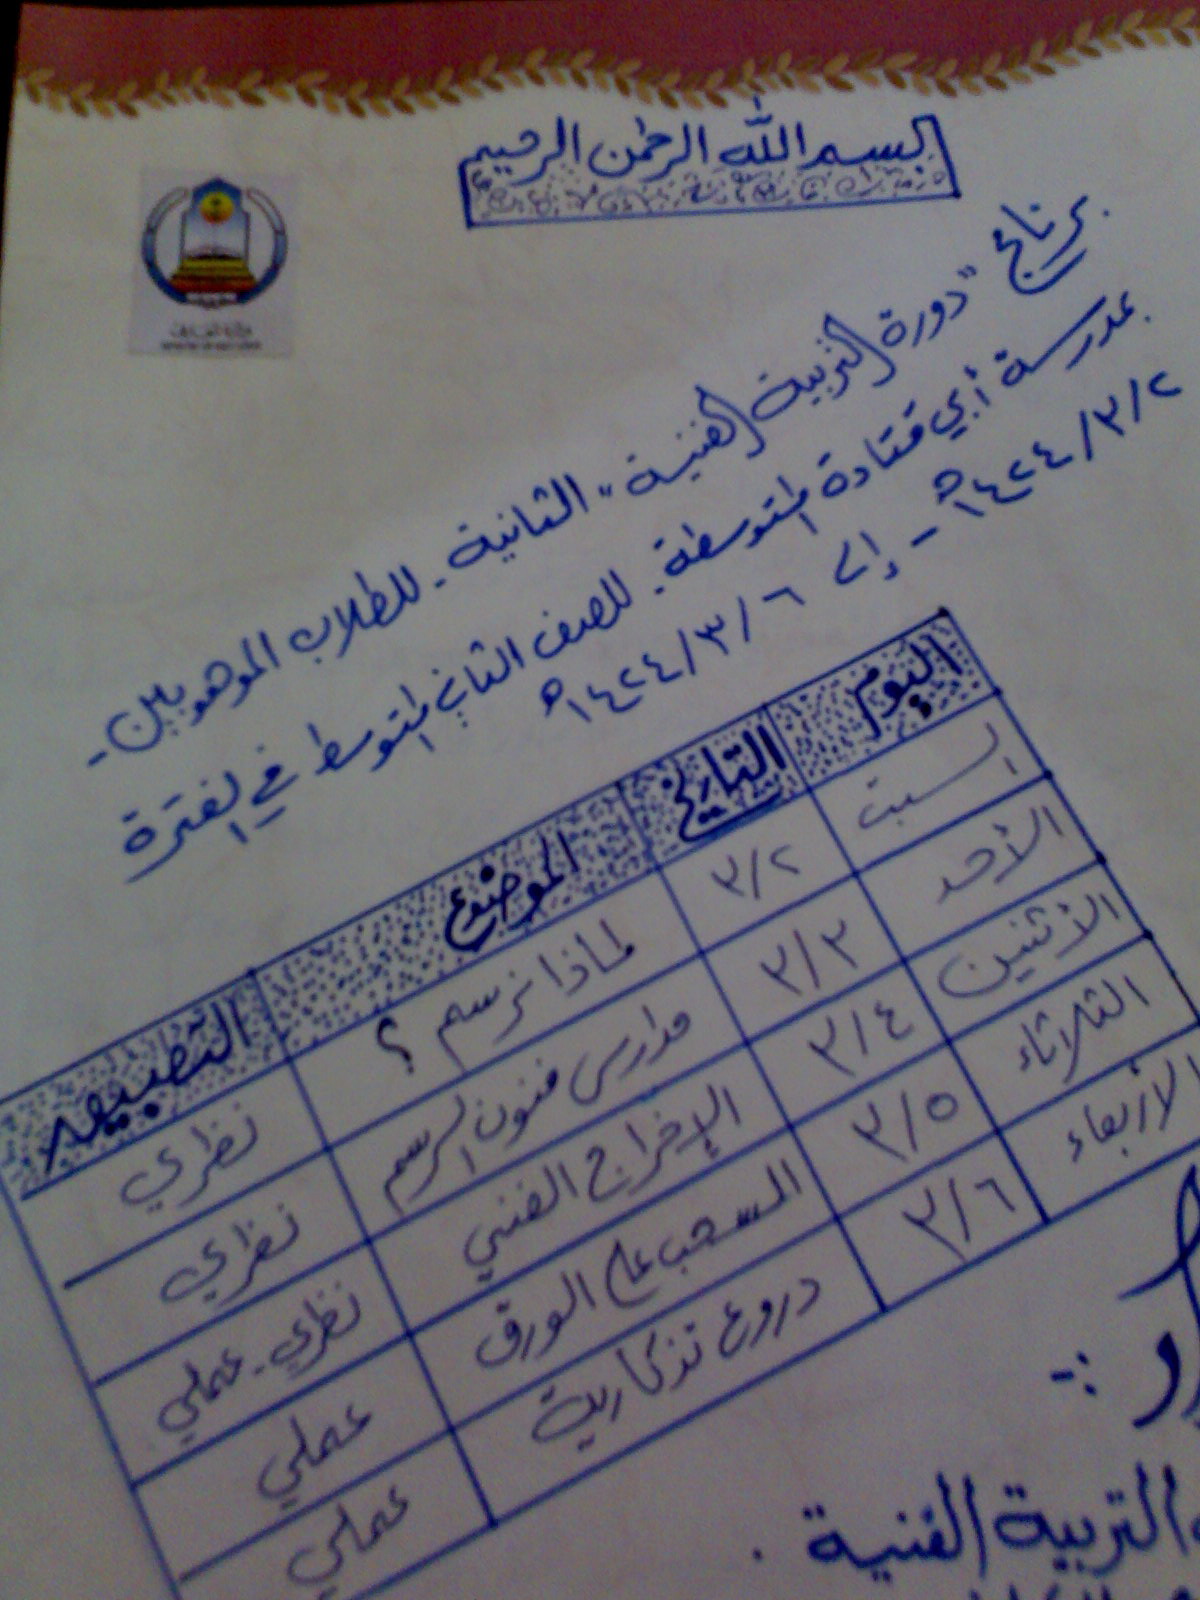 بسم الله الرحمن الرحيم
برنامج "دورة التربية الفنية" الثانية - للطلاب الموهوبين -
بمدرسة أبي قتادة المتوسطة - للصف الثاني المتوسط في الفترة
٢/٣/١٤٢٤هـ - إلى ٦/٣/١٤٢٤هـ
اليوم التاريخ الموضوع التطبيق
السبت ٣/٢ لماذا نرسم ؟ نظري
الأحد ٣/٣ مدارس فنون الرسم نظري
الاثنين ٣/٤ الإخراج الفني نظري - عملي
الثلاثاء ٣/٥ السحب على الورق عملي
الأربعاء ٣/٦ دروع تذكارية عملي
التربية الفنية .